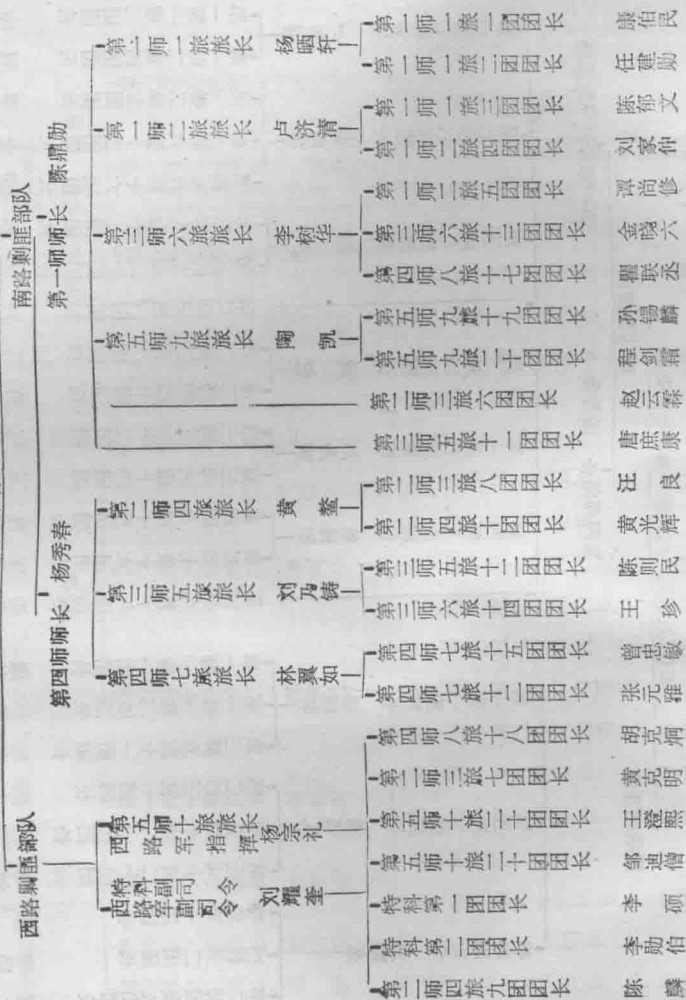 南路剿匪部队
第一师师长 陈鼎勋
第一师一旅旅长 杨晒轩
第一师一旅一团团长 康伯民
第一师一旅二团团长 任建勋
第一师二旅旅长 卢济清
第一师一旅三团团长 陈郁文
第一师二旅四团团长 刘家仲
第三师六旅旅长 李树华
第一师二旅五团团长 潭尚修
第三师六旅十三团团长 金六
第四师八旅十七团团长 瞿联丞
第五师九旅旅长 陶凯
第五师九旅十九团团长 孙锡麟
第五师九旅二十团团长 程剑霜
第二师三旅六团团长 赵云霖
第三师五旅十一团团长 唐庶康
第四师师长 杨秀春
第二师四旅旅长 黄鳌
第二师三旅八团团长 汪良
第二师四旅十团团长 黄光辉
第三师五旅旅长 刘乃铸
第三师五旅十二团团长 陈则民
第三师六旅十四团团长 王珍
第四师七旅旅长 林翼如
第四师七旅十五团团长 曾忠敏
第四师七旅十二团团长 张元雅
西路剿匪部队
第五师十旅旅长
西路军指挥 杨宗礼
特科副司令
西路军副司令 刘耀奎
第四师八旅十八团团长 胡克炯
第二师三旅七团团长 黄克明
第五师十旅二十团团长 王澄熙
第五师十旅二十团团长 邹迪僧
特科第一团团长 李硕
特科第二团团长 李勋伯
第二师四旅九团团长 陈麟